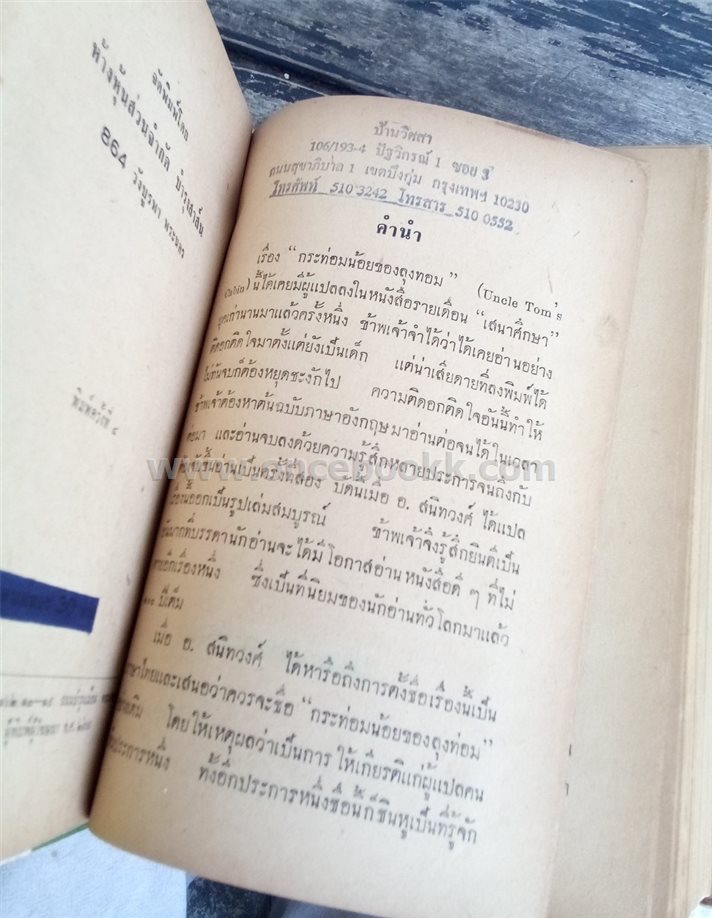 จัดพิมพ์โดย
ห้างหุ้นส่วนจำกัด บำรุงสาส์น
864 วังบูรพา พระนคร
พิมพ์ครั้งที่ ๔
บ้านวิศสา
106/193-4 ปัฐวิกรณ์ 1 ซอย 3
ถนนสุขาภิบาล 1 เขตบึงกุ่ม กรุงเทพฯ 10230
โทรศัพท์ 510 3242 โทรสาร 510 0552
คำนำ
เรื่อง “กระท่อมน้อยของลุงทอม” (Uncle Tom's
Cabin) นี้ได้เคยมีผู้แปลลงในหนังสือรายเดือน “เสนาศึกษา”
ยุคเก่านานมาแล้วครั้งหนึ่ง ข้าพเจ้าจำได้ว่าได้เคยอ่านอย่าง
ติดอกติดใจมาตั้งแต่ยังเป็นเด็ก แต่น่าเสียดายที่ลงพิมพ์ได้
ไม่ทันจบก็ต้องหยุดชะงักไป ความติดอกติดใจอันนี้ทำให้
ข้าพเจ้าต้องหาต้นฉบับภาษาอังกฤษมาอ่านต่อจนได้ในเวลา
ต่อมา และอ่านจบลงด้วยความรู้สึกหลายประการจนถึงกับ
อ่านเป็นครั้งที่สอง บัดนี้เมื่อ อ. สนิทวงศ์ ได้แปล
ออกเป็นรูปเล่มสมบูรณ์ ข้าพเจ้าจึงรู้สึกยินดีเป็น
ที่บรรดานักอ่านจะได้มีโอกาสอ่านหนังสือดี ๆ ที่ไม่
อีกเรื่องหนึ่ง ซึ่งเป็นที่นิยมของนักอ่านทั่วโลกมาแล้ว
ปีเต็ม
เมื่อ อ. สนิทวงศ์ ได้หารือถึงการตั้งชื่อเรื่องนี้เป็น
ภาษาไทยและเสนอว่าควรจะชื่อ “กระท่อมน้อยของลุงท่อม”
เดิม โดยให้เหตุผลว่าเป็นการให้เกียรติแก่ผู้แปลคน
ประการหนึ่ง ทั้งอีกประการหนึ่งชื่อนี้ก็ชินหูเป็นที่รู้จัก
www.oncebookk.com